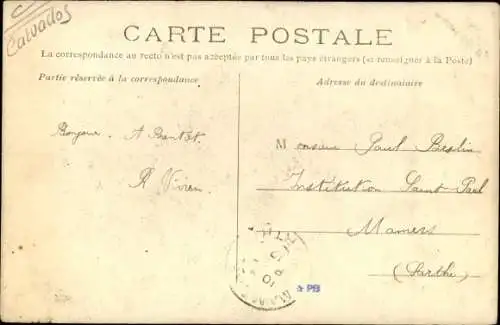 Calvados
CARTE POSTALE
La correspondance au recto n'est pas acceptée par tous les pays étrangers (se renseigner à la Poste)
Partie réservée à la correspondance
Adresse du destinataire
Bonjour. A Bientôt.
R
Monsieur Paul Beslin
Institution Saint Paul
Mamers
(Sarthe)
☆ PB